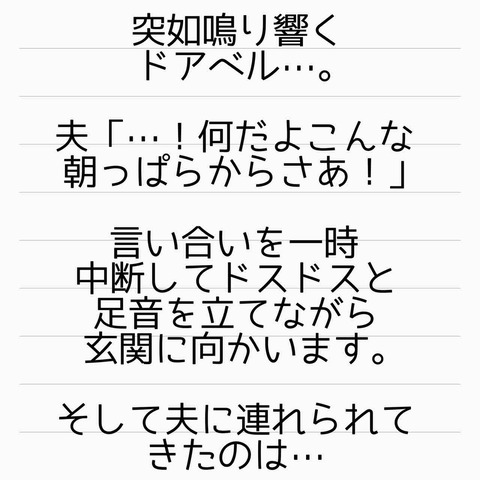 突如鳴り響く
ドアベル…。
夫「…！何だよこんな
朝っぱらからさあ！」
言い合いを一時
中断してドスドスと
足音を立てながら
玄関に向かいます。
そして夫に連れられて
きたのは…